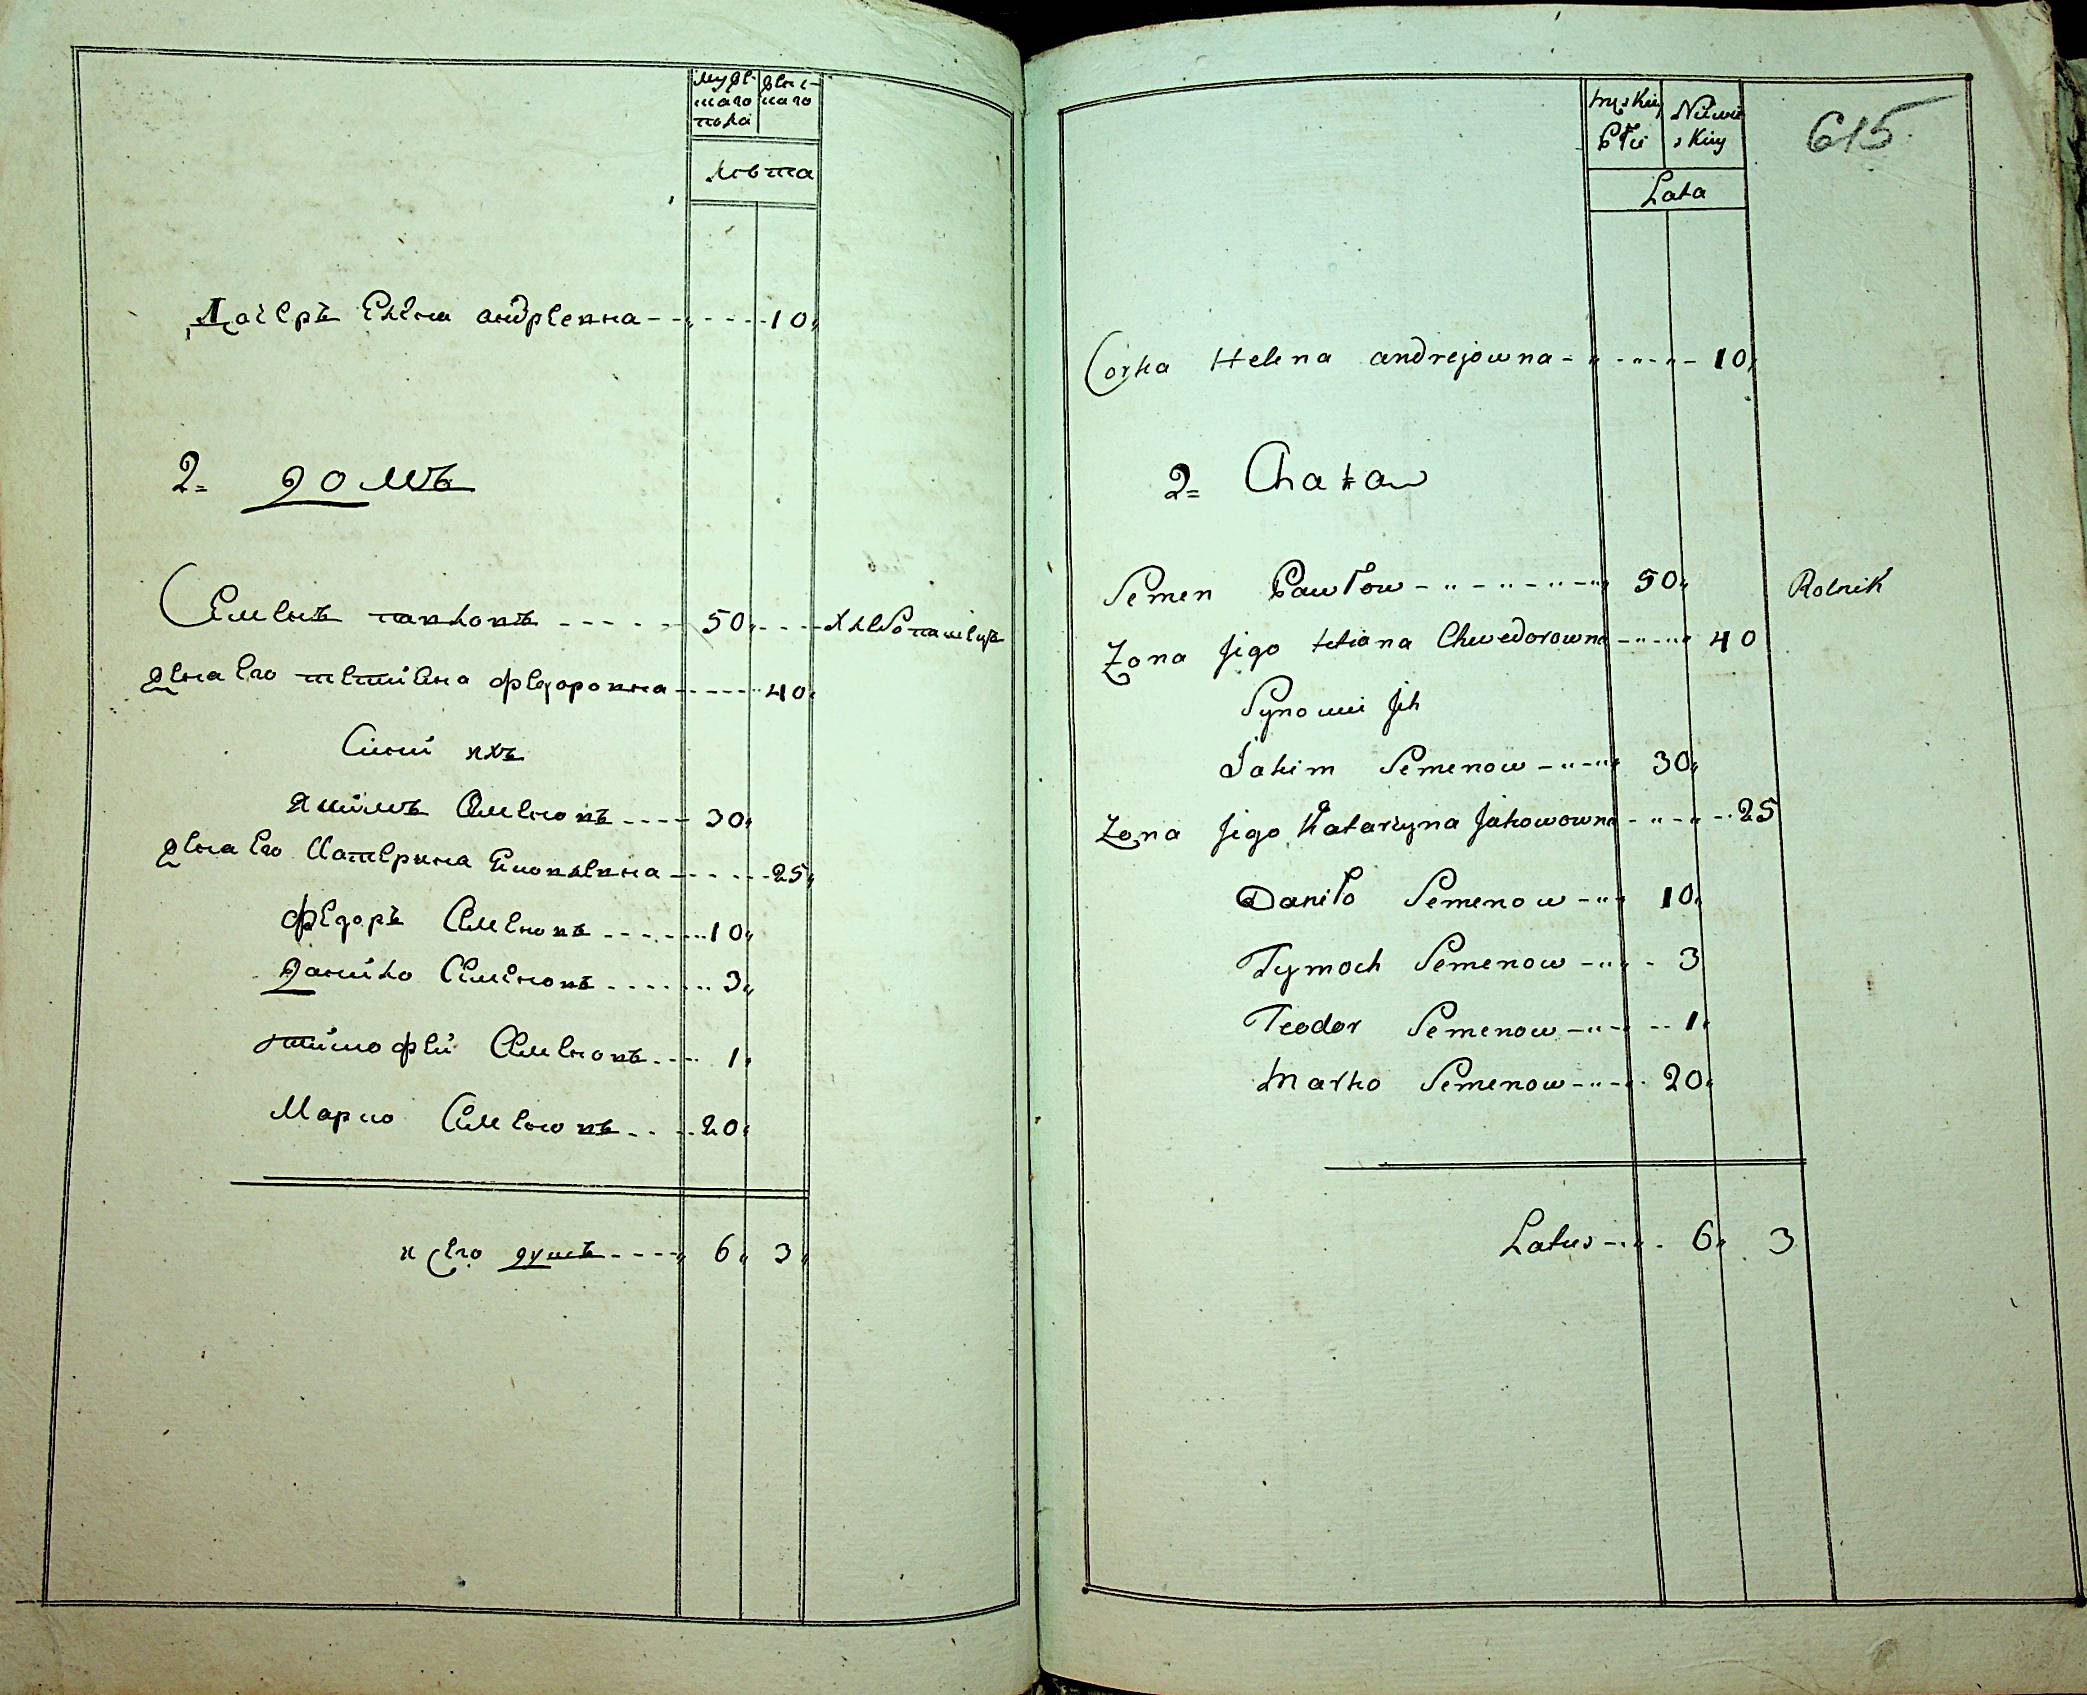 мужескаго пола женскаго
лѣта
Дочерь Елена андреевна 10
2 домъ
Семенъ павловъ 50 хлѣбопашецъ
жена его тетиана федоровна 40
Сини ихъ
Якимъ Семеновъ 30
жена его Катерина Яковлевна 25
федоръ Семеновъ 10
данило Семеновъ 3
тимофей Семеновъ 1
Марко Семеновъ 20
всего душъ 6 3
Męskiey Płci Niewieskiey
Lata
615
Corka Helena andrejowna 10
2 Chata
Semen Pawłow 50 Rolnik
Zona Jego tetiana Chwedorowna 40
Synowie Jch
Jakim Semenow 30
Zona Jego Katarzyna Jakowowna 25
Daniło Semenow 10
Tymoch Semenow 3
Teodor Semenow 1
Marko Semenow 20
Latus 6 3